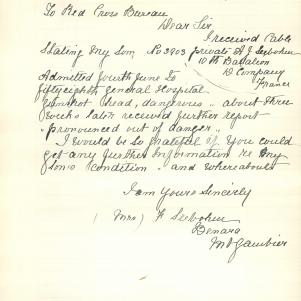 To Red Cross Bureau
Dear Sir
I received Cable
Stating My Son, No 3903 private A J Seebohm
10th Batalion
D Company
France
Admitted fourth June to
fiftyeighth General Hospital
Gunshot Head, dangerous, about three
weeks later received further report
"pronounced out of danger"
I would be so grateful if you could
get any further Information re my
son's condition and whereabouts
I am Yours Sincerely
(Mrs) F Seebohm
Benara
Mt Gambier